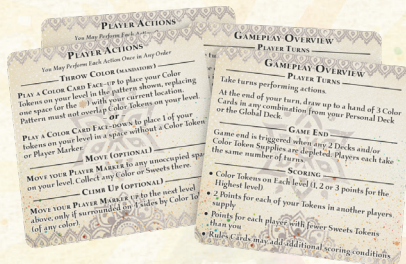 PLAYER ACTIONS
You May Perform Each
PLAYER ACTIONS
You May Perform Each Action Once in Any Order
THROW COLOR (MANDATORY)
PLAY A COLOR CARD FACE-UP to place your Color
Tokens on your level in the pattern shown, replacing
one space (or the ) with your current location.
Pattern must not overlap Color Tokens on your level.
or
PLAY A COLOR CARD FACE-DOWN to place 1 of your
tokens on your level in a space without a Color Token
or Player Marker.
MOVE (OPTIONAL)
MOVE YOUR PLAYER MARKER to any unoccupied spa
on your level. Collect any Color or Sweets there.
CLIMB UP (OPTIONAL)
MOVE YOUR PLAYER MARKER UP to the next level
above, only if surrounded on sides by Color To
(of any color).
GAMEPLAY OVERVIEW
PLAYER TURNS
GAMEPLAY OVERVIEW
PLAYER TURNS
Take turns performing actions.
At the end of your turn, draw up to a hand of 3 Color
Cards in any combination from your Personal Deck
or the Global Deck.
GAME END
Game end is triggered when any 2 Decks and/or
Color Token Supplies are depleted. Players each take
the same number of turns.
SCORING
• Color Tokens on Each level (1, 2 or 3 points for the
Highest level)
• 2 Points for each of your Tokens in another players
supply
• Points for each player with fewer Sweets Tokens
than you
• Rules Cards may add additional scoring conditions